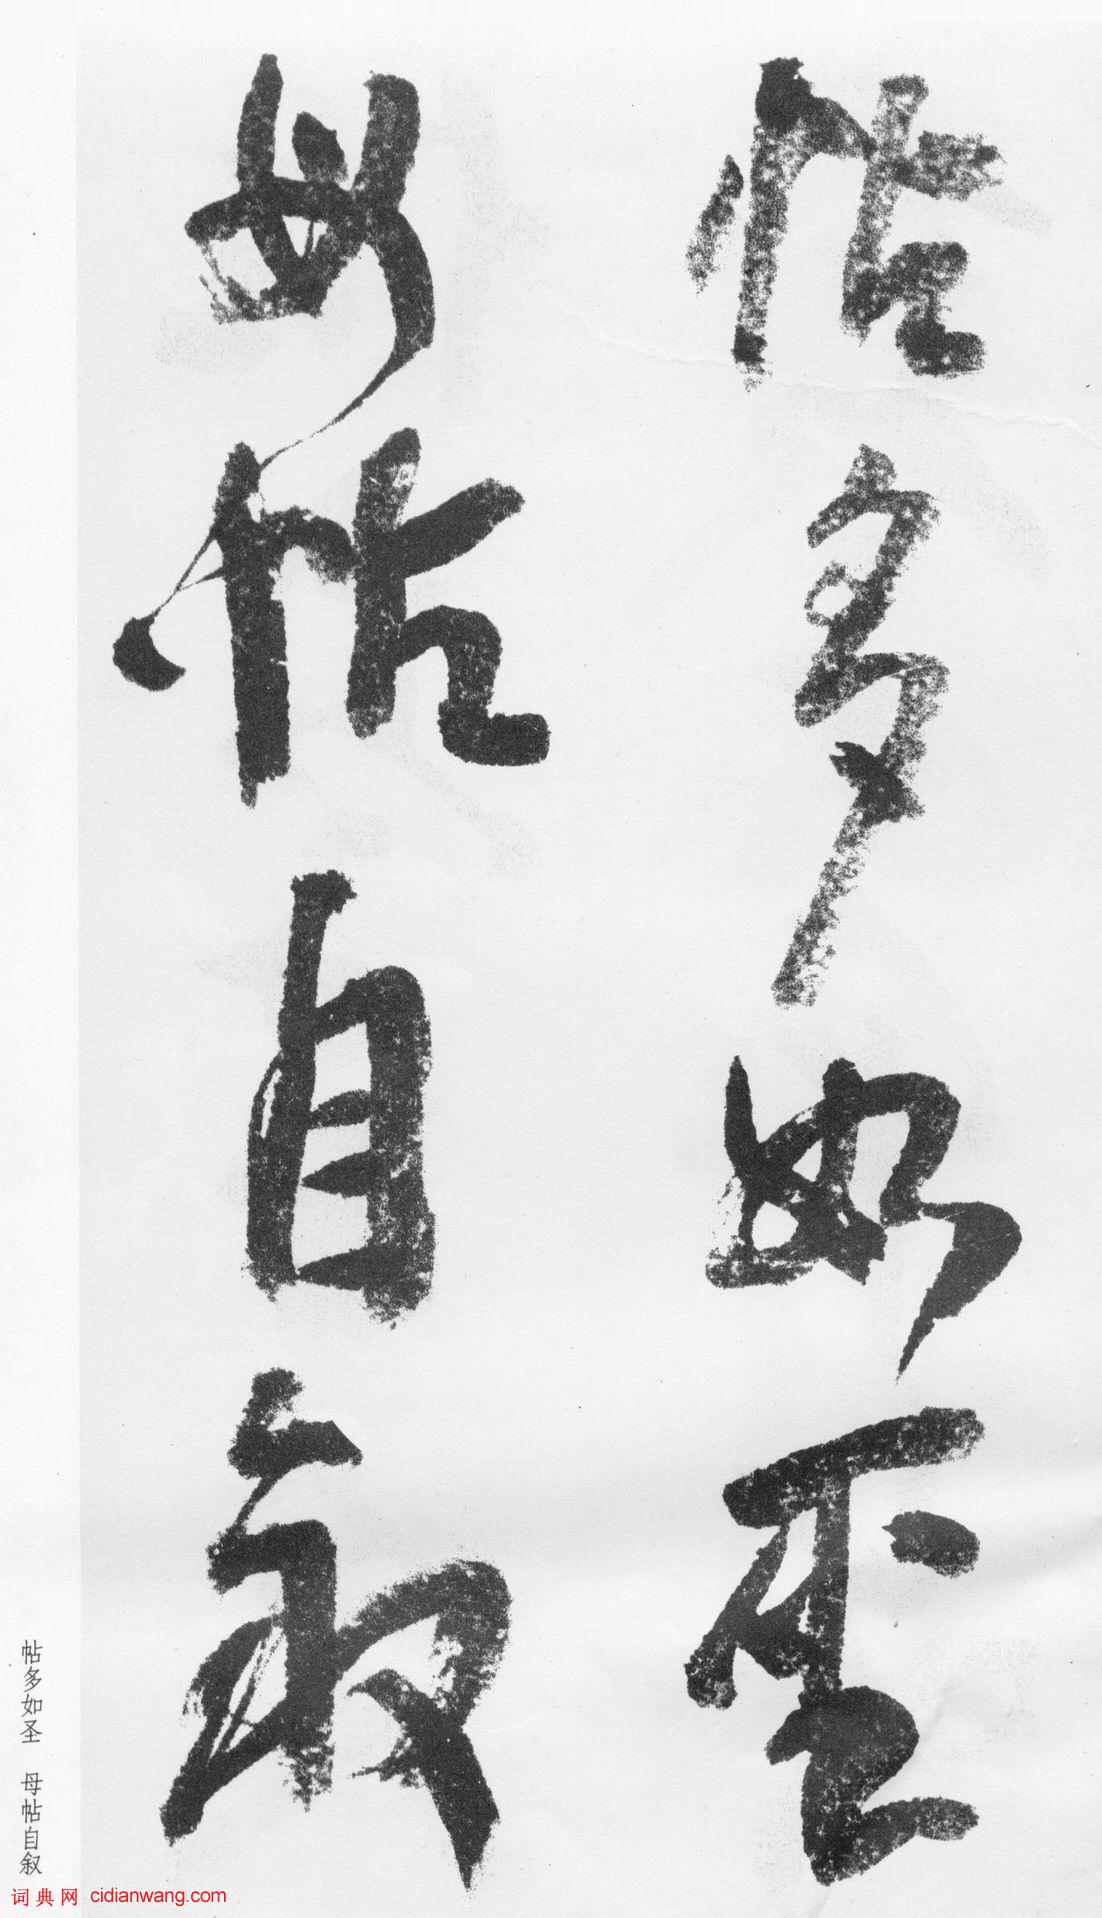 帖多如聖
母帖自敘
帖多如圣 母帖自叙
词典网 cidianwang.com